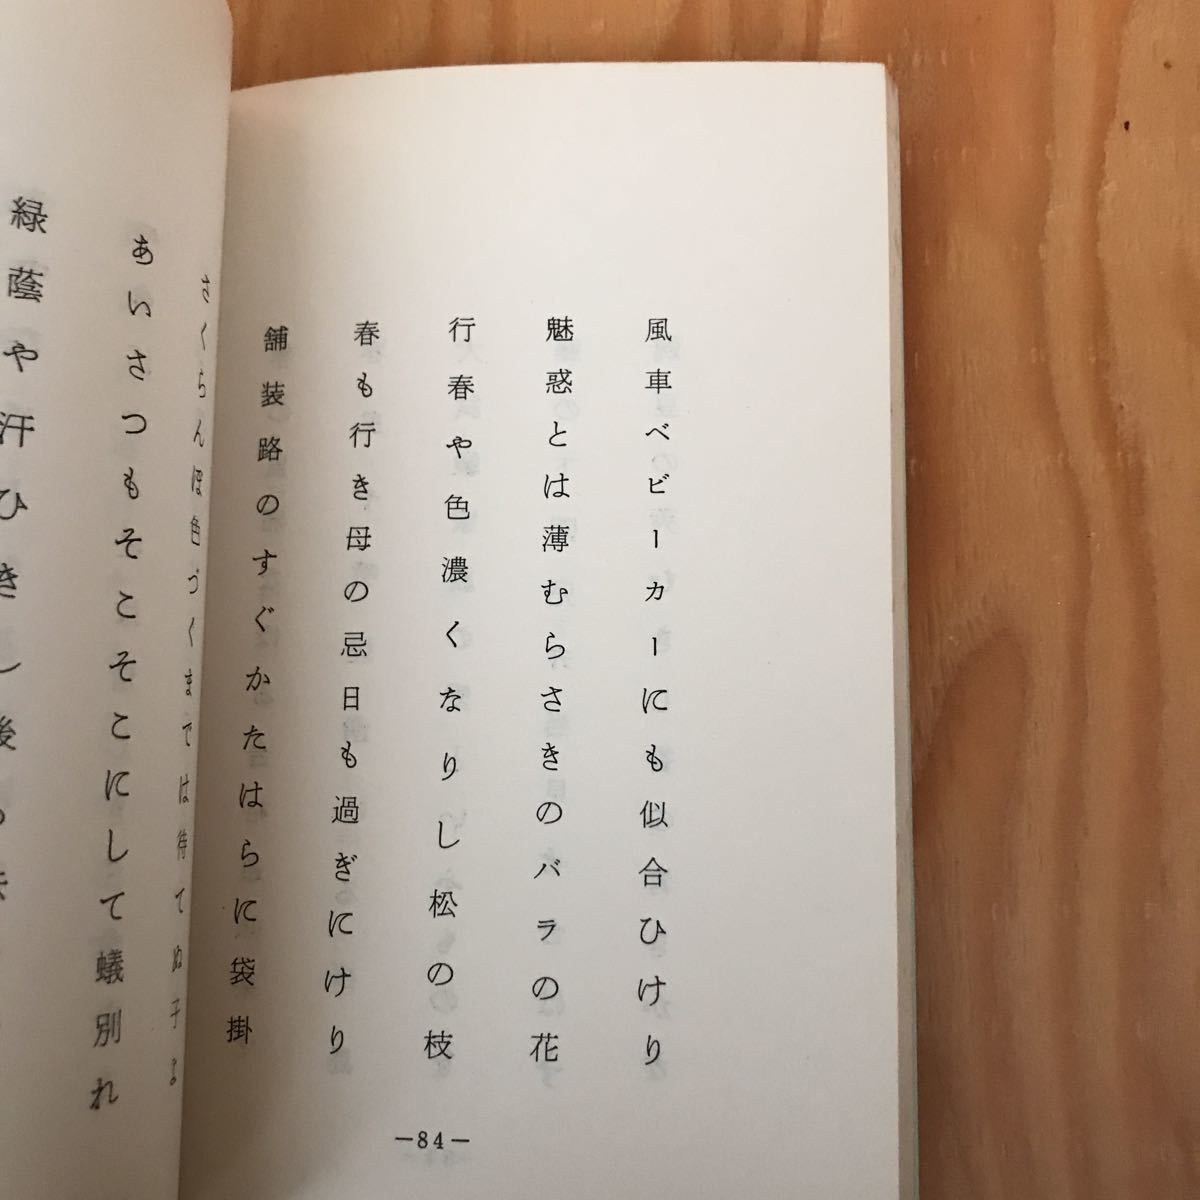 風車ベビーカーにも似合ひけり
魅惑とは薄むらさきのバラの花
行春や色濃くなりし松の枝
春も行き母の忌日も過ぎにけり
舗装路のすぐかたはらに袋掛
—84—
さくらんぼ色づくまでは待てぬ子よ
あいさつもそこそこにして蟻別れ
緑蔭や汗ひきし後